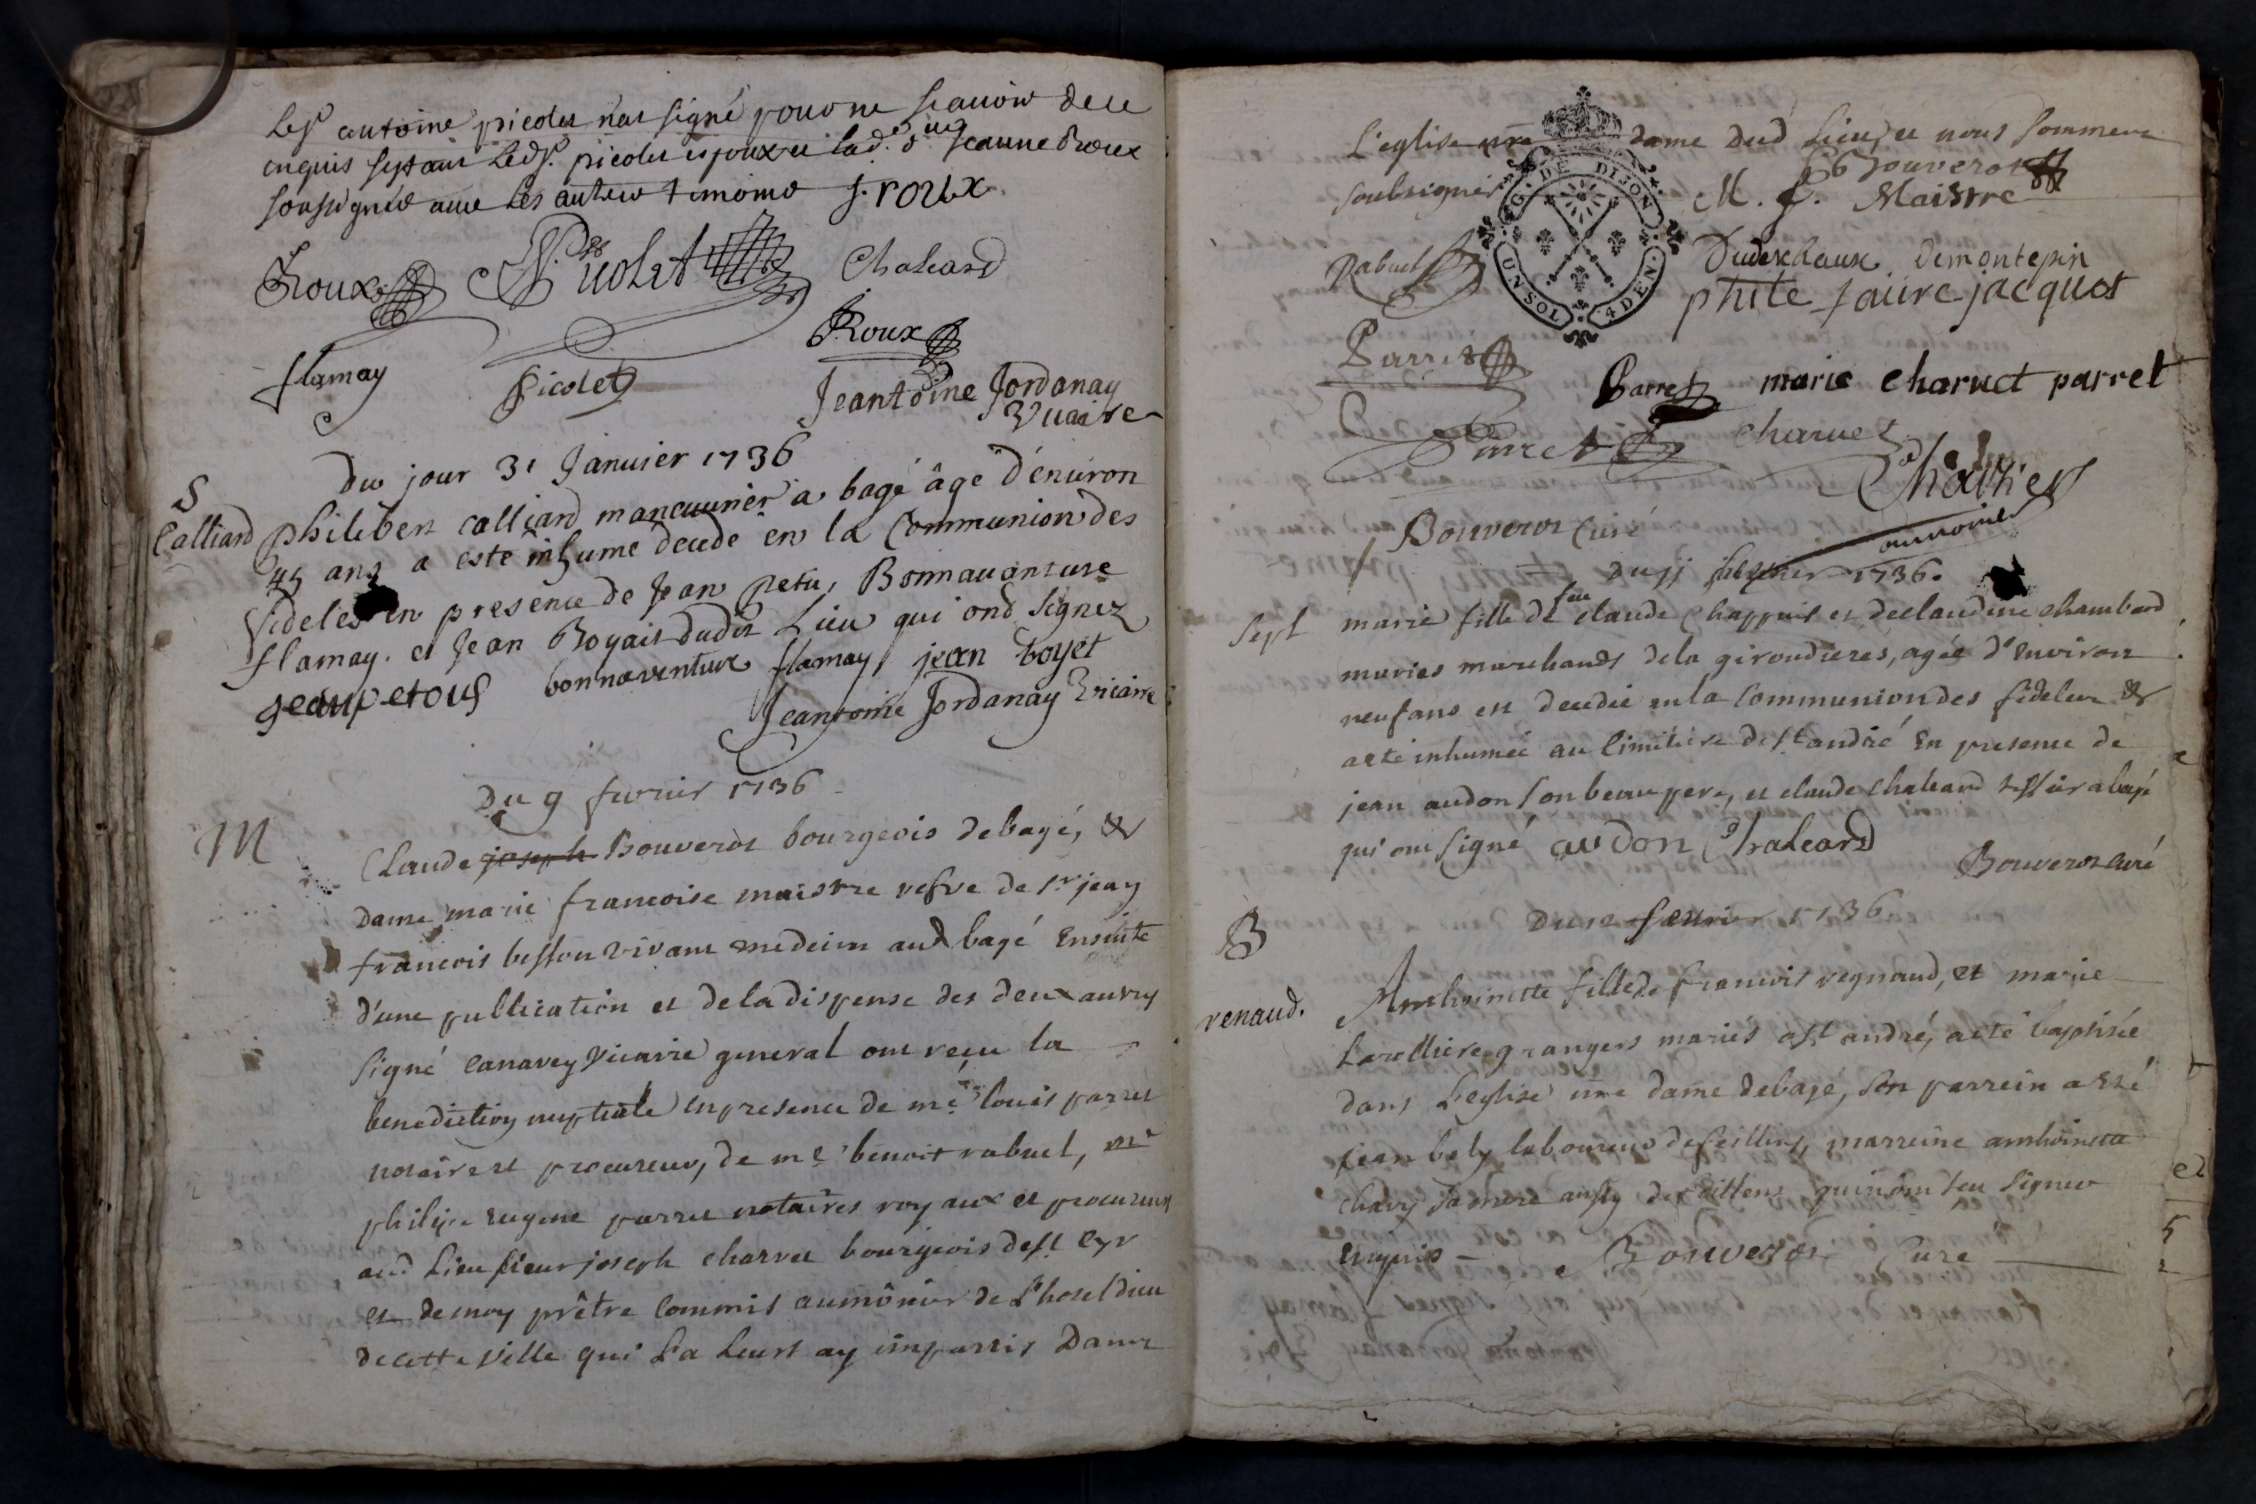 Le sr antoine picolet n'at signé pour ne scauoir de ce
enquis
soussignés auec les autres temoins J. roux
Roux Picolet Chaleard
Roux
flamay Picolet Jeantoine Jordanay
Vicaire
Du jour 31 Januier 1736
S
Calliard
philibert calliard manouurier a bagé âgé d'énuiron
45 ans a esté inhumé décédé en la Communion des
fideles en presence de Jean petit, Bonnauanture
flamay. et Jean Boyait dudit Lieu qui ond signez
bonnaventure flamay jean boyet
Jeantoine Jordanay Vicaire
Du 9 fevrier 1736
M
Claude joseph Bouverot bourgeois de bagé, &
dame marie francoise maistre vefve de sr jean
francois vivant medecin aud bagé Ensuite
d'une publication et de la dispense des deux autres
signé canavey vicaire general ont reçu la
benediction nuptiale en presence de me louis parret
notaire et procureur, de me benoit rabuel, me
philipe eugene parret notaires royaux et procureurs
aud Lieu sieur joseph charvet bourgeois de st Cyr
et de moy prêtre commis aumônier de L'hotel dieu
de cette ville qui La Leurs ay imparti Dans
L'eglise nre dame dud Lieu, et nous sommes
soubsignés
G. DE DIJON
UN SOL 4 DEN.
Bouverot
M. f. Maistre
Rabuel demontepin
faure jacquet
Parret
Parret marie charuet parret
Parret charuet
Chattier
Bouverot Curé aumonier
Du 11 fevrier 1736.
Sept
marie fille de feu claude chappuis et de claudine chambard
maries marchands de la giroudieres, agée d'environ
neuf ans est decedée en la communion des fideles &
a eté inhumée au cimitiere de st andré En presence de
jean audon son beau pere, et claude chaleard tessier a bagé
qui ont signé audon Chaleard
Bouverot curé
Du 12 feurier 1736
B
renaud.
Anthoinette fille de francois regnaud, et marie
grangers mariés a st andré, a eté baptisée
dans L'eglise nre dame de bagé, son parrein a eté
jean bely laboureur de feillens, marreine anthoinette
chavy sa mere aussy de feillens qui n'ont sçeu signer
enquis Bouverot Curé